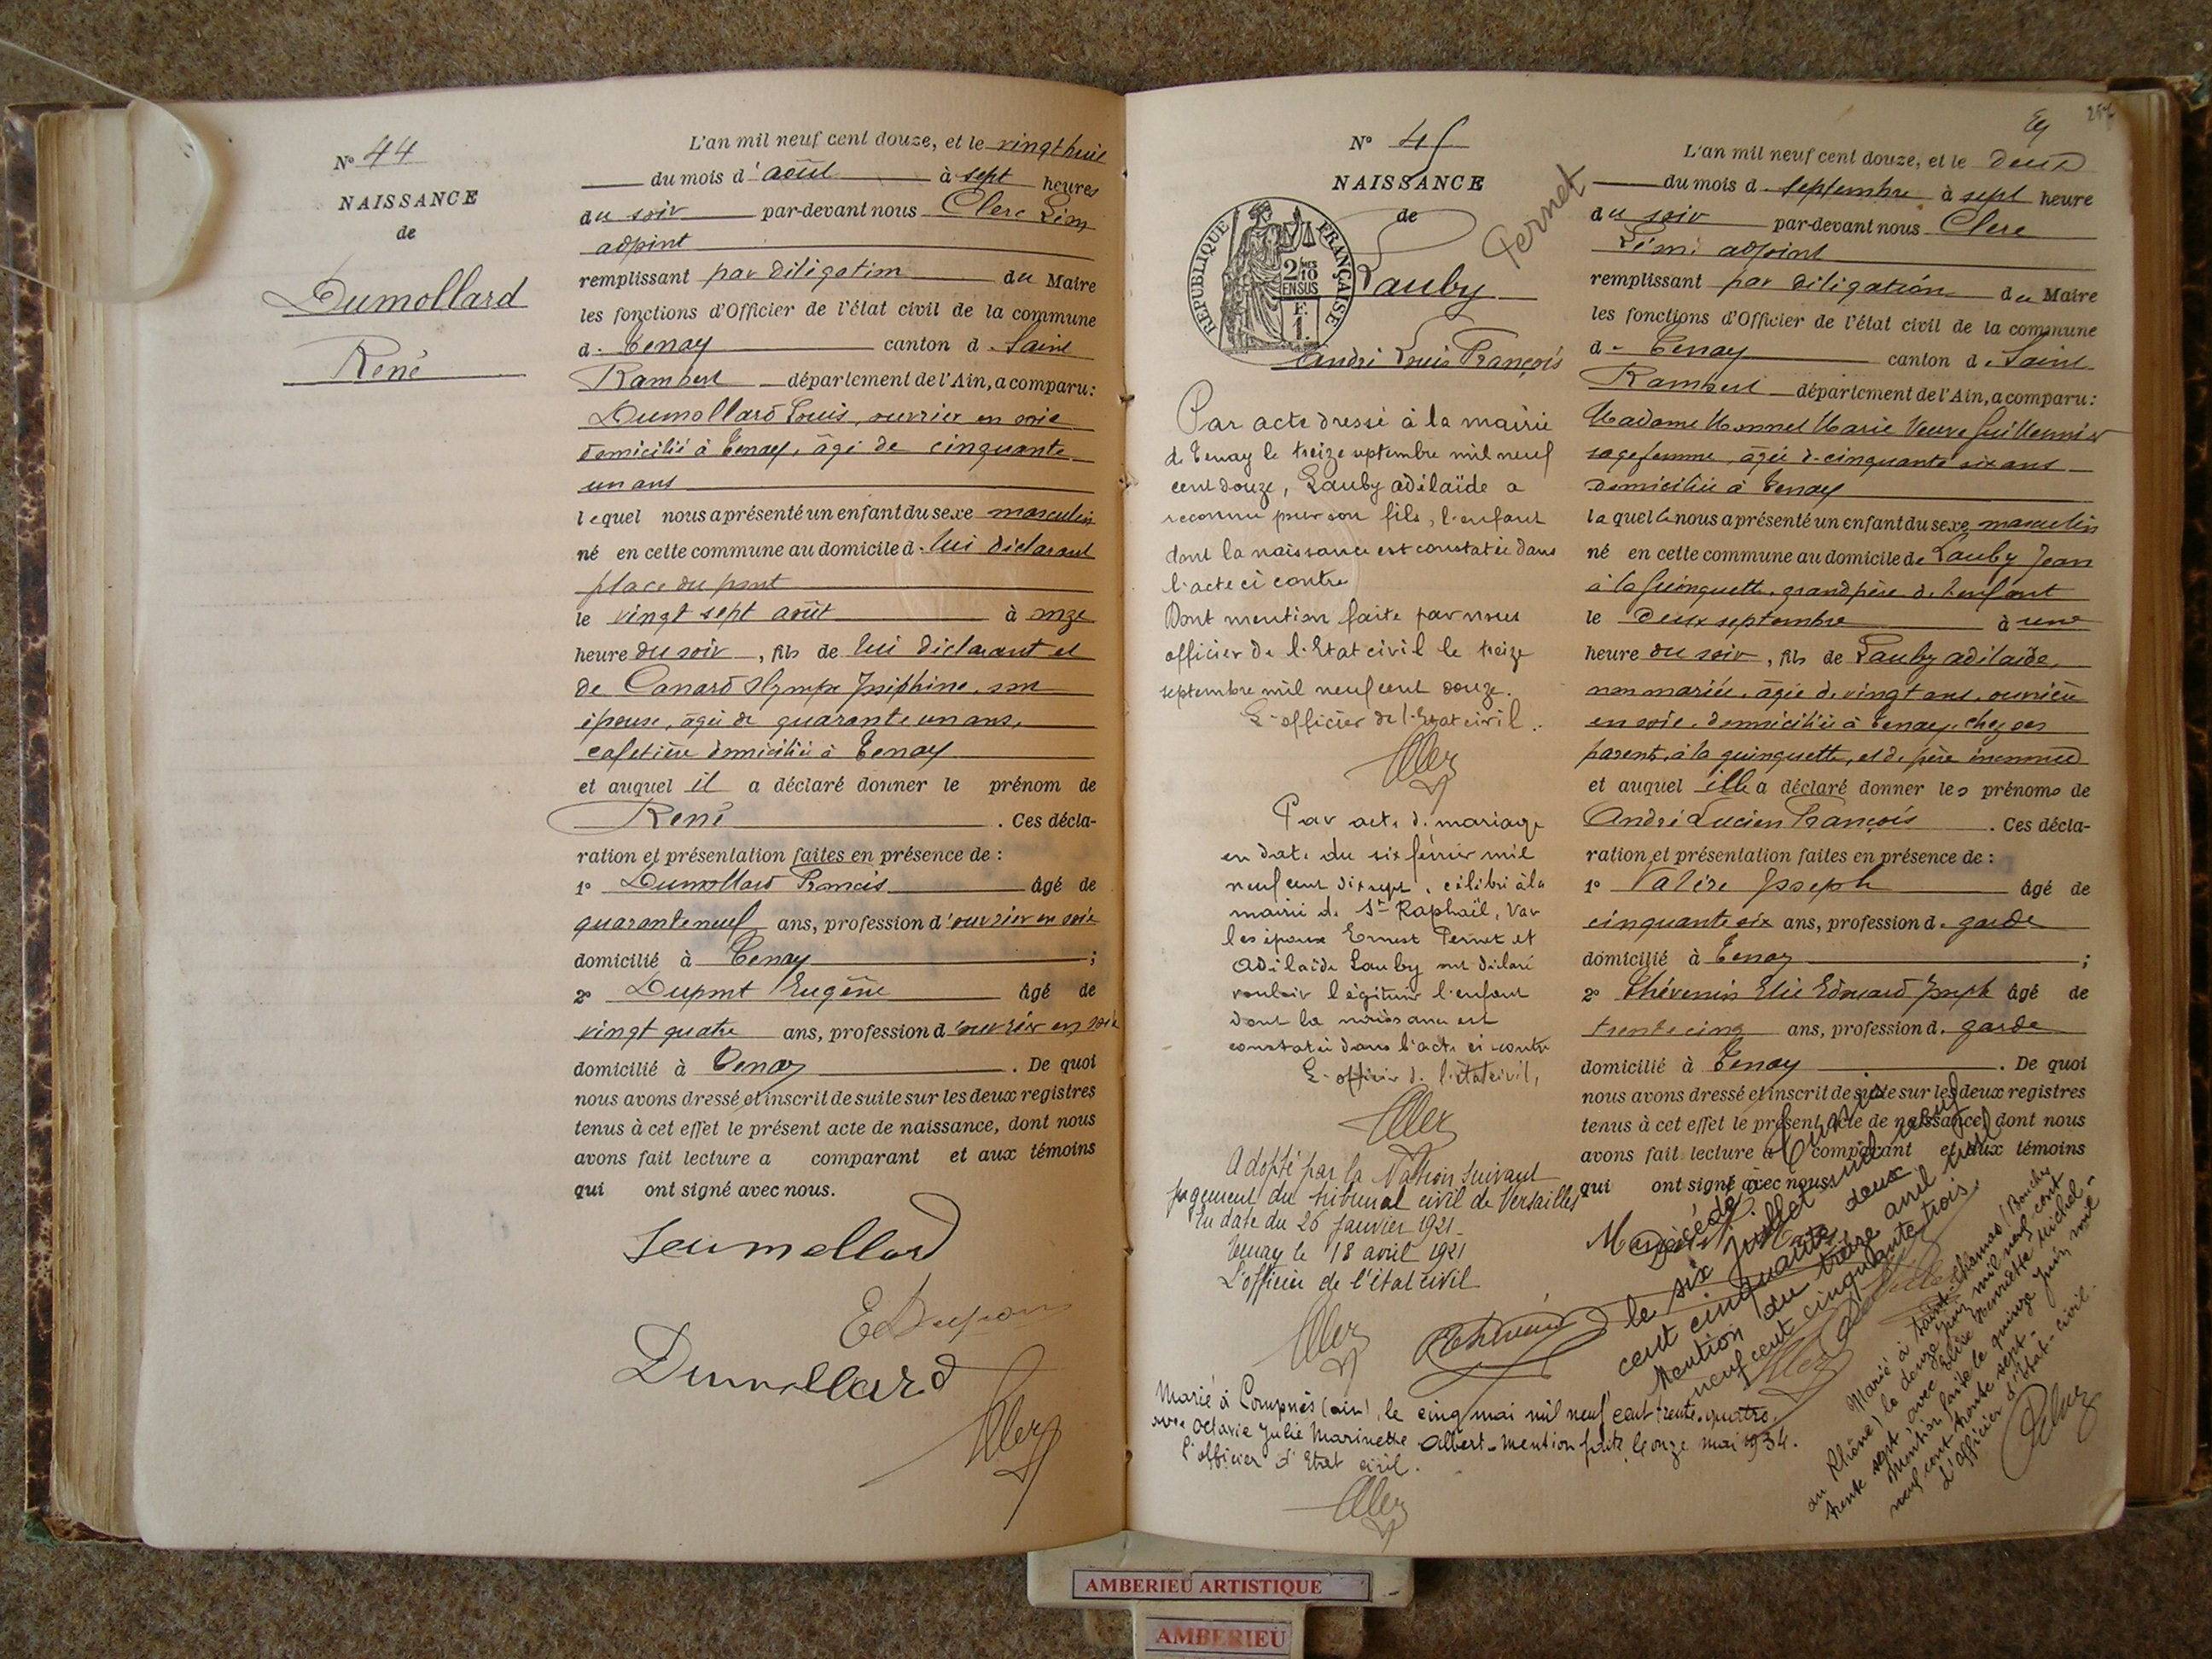 N° 44
NAISSANCE
de
Dumollard
René
L'an mil neuf cent douze, et le vingt huit
du mois d'août à sept heures
du soir par-devant nous Clerc Rémi
adjoint
remplissant par déligation du Maire
les fonctions d'Officier de l'état civil de la commune
de Tenay canton de Saint
Rambert département de l'Ain, a comparu:
Dumollard Louis, ouvrier en soie
domicilié à Tenay, âgé de cinquante
un ans
lequel nous a présenté un enfant du sexe masculin
né en cette commune au domicile de lui déclarant
place du pont
le vingt sept août à onze
heure du soir, fils de lui déclarant et
de Canard Olympe Joséphine, son
épouse, âgée de quarante un ans,
cafetière domiciliée à Tenay
et auquel il a déclaré donner le prénom de
René. Ces décla-
ration et présentation faites en présence de:
1° Dumollard Francis âgé de
quarante neuf ans, profession d'ouvrier en soie
domicilié à Tenay;
2° Dupont Eugène âgé de
vingt quatre ans, profession d'ouvrier en soie
domicilié à Tenay. De quoi
nous avons dressé et inscrit de suite sur les deux registres
tenus à cet effet le présent acte de naissance, dont nous
avons fait lecture a comparant et aux témoins
qui ont signé avec nous.
Dumollard
E Dupont
Dumollard
257
N° 45
NAISSANCE
de
Pernet
RÉPUBLIQUE FRANÇAISE
2/10 MES EN SUS
F. 1.
Lauby
André Louis François
Par acte dressé à la mairie
de Tenay le treize septembre mil neuf
cent douze, Lauby adélaïde a
reconnu pour son fils, l'enfant
dont la naissance est constatée dans
l'acte ci contre
Dont mention faite par nous
officier de l'Etat civil le treize
septembre mil neuf cent douze.
L'officier de l'Etat civil.
Par acte de mariage
en date du six février mil
neuf cent dix sept, célébré à la
mairie de St Raphaël, Var
les époux Ernest Pernet et
Adélaïde Lauby ont déclaré
vouloir légitimer l'enfant
dont la naissance est
constatée dans l'acte ci contre
L'officier de l'état civil,
Adopté par la Nation suivant
jugement du tribunal civil de Versailles
en date du 26 janvier 1921.
Tenay le 18 avril 1921
L'officier de l'état civil
Marié à Compnès (ain), le cinq mai mil neuf cent trente-quatre,
avec Octavie Julie Marinette Albert. Mention faite le onze mai 1934.
l'officier d'Etat civil.
L'an mil neuf cent douze, et le deux
du mois de septembre à sept heure
du soir par-devant nous Clerc
Rémi adjoint
remplissant par déligation du Maire
les fonctions d'Officier de l'état civil de la commune
de Tenay canton de Saint
Rambert département de l'Ain, a comparu:
Madame Monnet Marie Veuve Guillermier
sage femme, âgée de cinquante six ans
domiciliée à Tenay
laquelle nous a présenté un enfant du sexe masculin
né en cette commune au domicile de Lauby Jean
à la Guinguette, grand père de l'enfant
le deux septembre à une
heure du soir, fils de Lauby adélaïde,
non mariée, âgée de vingt ans, ouvrière
en soie, domiciliée à Tenay, chez ses
parents, à la guinguette, et de père innommé
et auquel elle a déclaré donner les prénoms de
André Lucien François. Ces décla-
ration et présentation faites en présence de:
1° Valère Joseph âgé de
cinquante six ans, profession de garde
domicilié à Tenay;
2° Thévenin Elie Edouard Joseph âgé de
trente cinq ans, profession de garde
domicilié à Tenay. De quoi
nous avons dressé et inscrit de suite sur les deux registres
tenus à cet effet le présent acte de naissance, dont nous
avons fait lecture a comparant et aux témoins
qui ont signé avec nous.
Décédé à
le six juillet mil neuf
cent cinquante deux
Mention du treize avril mil
neuf cent cinquante trois.
Marié à Saint-Chamas (Bouches
du Rhône) le douze juin mil neuf cent
trente sept, avec Elise Henriette Michel-
Mention faite le quinze juin mil
neuf cent trente sept-
L'officier d'état-civil.
AMBERIEU ARTISTIQUE
AMBERIEU